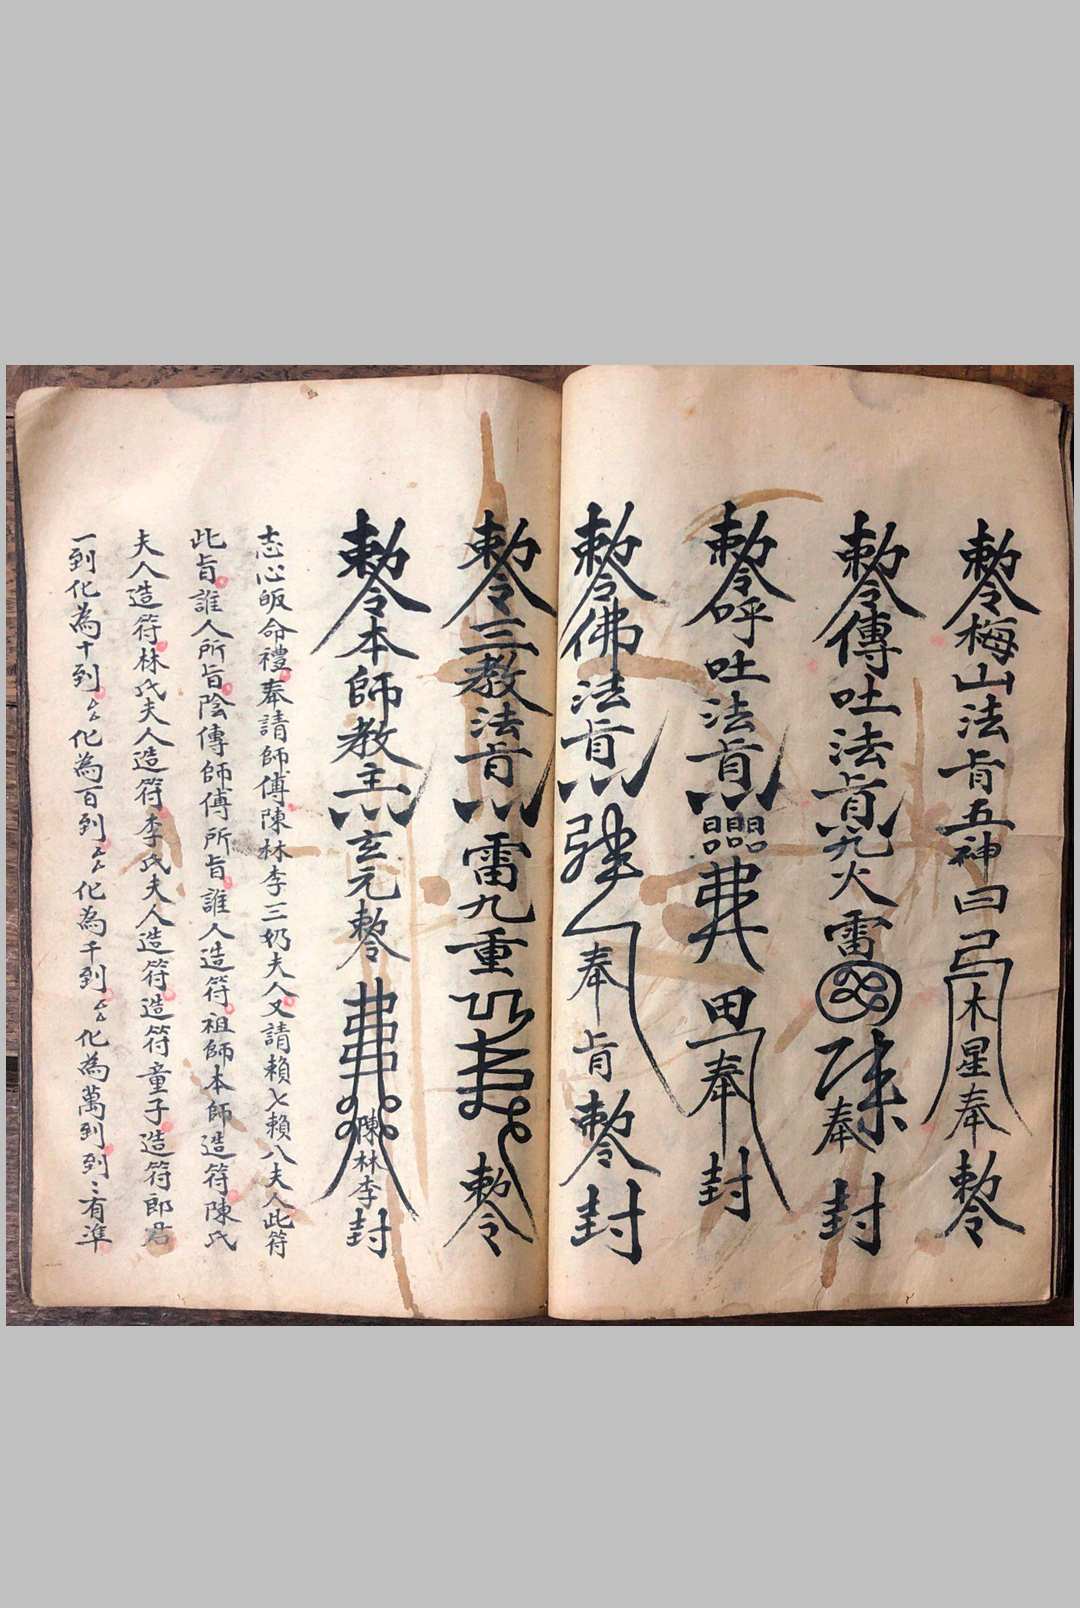 勅令梅山法旨五神曰弓木星奉勅令
勅令傳吐法旨九火雷奉封
勅令呼吐法旨品品弗田奉封
勅令佛法旨奉旨勅令封
勅令三教法旨雷九重勅令
勅令本師教主玄元勅令弗陳林李封
志心皈命禮奉請師傅陳林李三奶夫人又請賴七賴八夫人此符
此旨誰人所旨陰傳師傅所旨誰人造符祖師本師造符陳氏
夫人造符林氏夫人造符李氏夫人造符造符童子造符郎君
一到化為十到化為百到化為千到化為萬到到有準